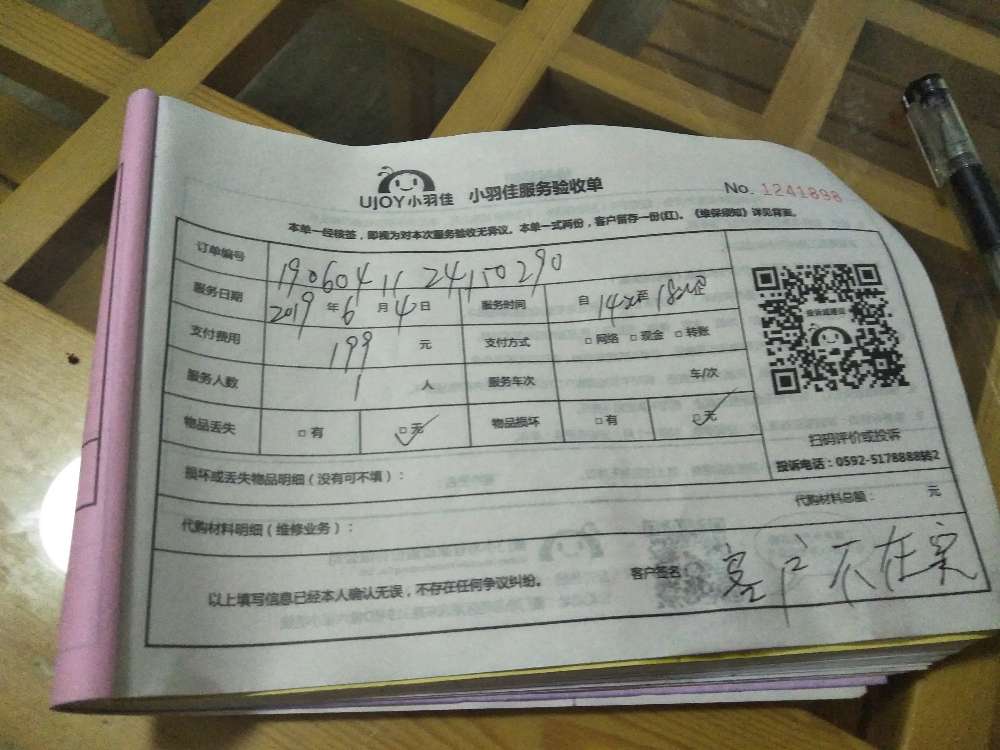 UJOY小羽佳 小羽佳服务验收单 No. 1241898
本单一经核签，即视为对本次服务验收无异议。本单一式两份，客户留存一份(红)。《维保须知》详见背面。
订单编号 1906041124150290
服务日期 2019年6月4日 服务时间 自14 至18
投诉或建议
支付费用 199元 支付方式 □网络 □现金 □转账
服务人数 1人 服务车次 车/次
物品丢失 □有 □无 物品损坏 □有 □无
扫码评价或投诉
投诉电话：0592-5178888转2
损坏或丢失物品明细（没有可不填）：
代购材料明细（维修业务）： 代购材料总额： 元
以上填写信息已经本人确认无误，不存在任何争议纠纷。 客户签名： 客户不在家